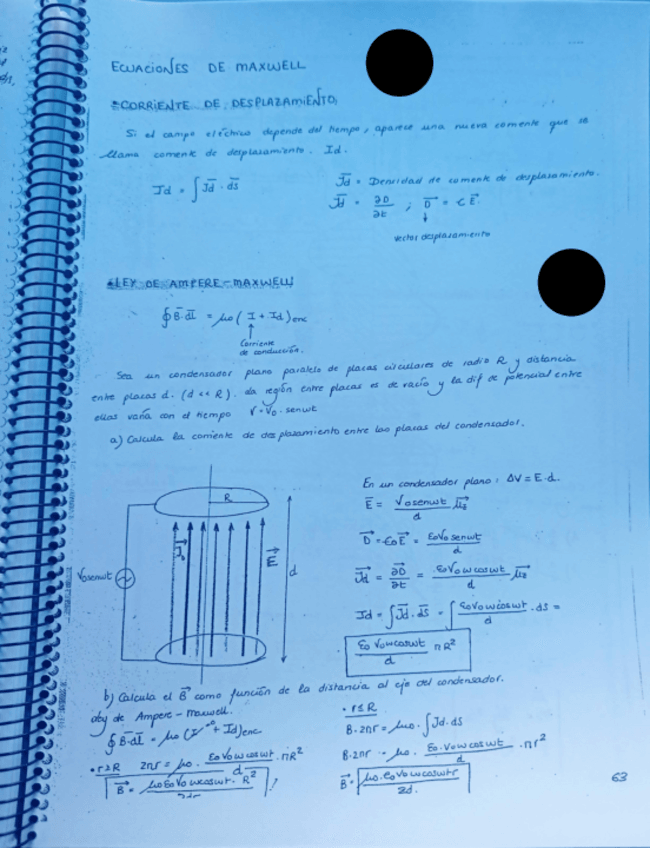 ECUACIONES DE MAXWELL
*CORRIENTE DE DESPLAZAMIENTO,
Si el campo eléctrico depende del tiempo, aparece una nueva corriente que se
llama corriente de desplazamiento. Id.
Id = ∫ J̅d · ds̅
J̅d = Densidad de corriente de desplazamiento.
J̅d = ∂D/∂t ; D⃗ = ε E⃗.
vector desplazamiento
*LEY DE AMPERE-MAXWELL
∮ B̅·dl̅ = μo ( I + Id )enc
Corriente
de conducción.
Sea un condensador plano paralelo de placas circulares de radio R y distancia
entre placas d. (d << R). La región entre placas es de vacío y la dif de potencial entre
ellas varía con el tiempo V=Vo.senwt
a) Calcula la corriente de desplazamiento entre las placas del condensador.
En un condensador plano: ΔV = E·d
E̅ = Vosenwt/d u⃗z
D⃗ = εoE⃗ = εoVosenwt/d
J⃗d = ∂D⃗/∂t = εoVowcoswt/d u⃗z
Id = ∫ J⃗d · ds̅ = ∫ εoVowcoswt/d · ds =
εo Vowcoswt/d πR²
R
E⃗
d
Vosenwt
b) Calcula el B⃗ como función de la distancia al eje del condensador.
Ley de Ampere-Maxwell.
∮ B̅·dl̅ = μo (I→0 + Id)enc
• r≥R 2πr = μo · εoVowcoswt/d · πR²
B⃗ = μoεoVowcoswt · R²/2dr
• r≤R
B·2πr = μo · ∫ Jd·ds
B·2πr = μo · εo·Vowcoswt/d · πr²
B⃗ = μo·εoVowcoswtr/2d.
63